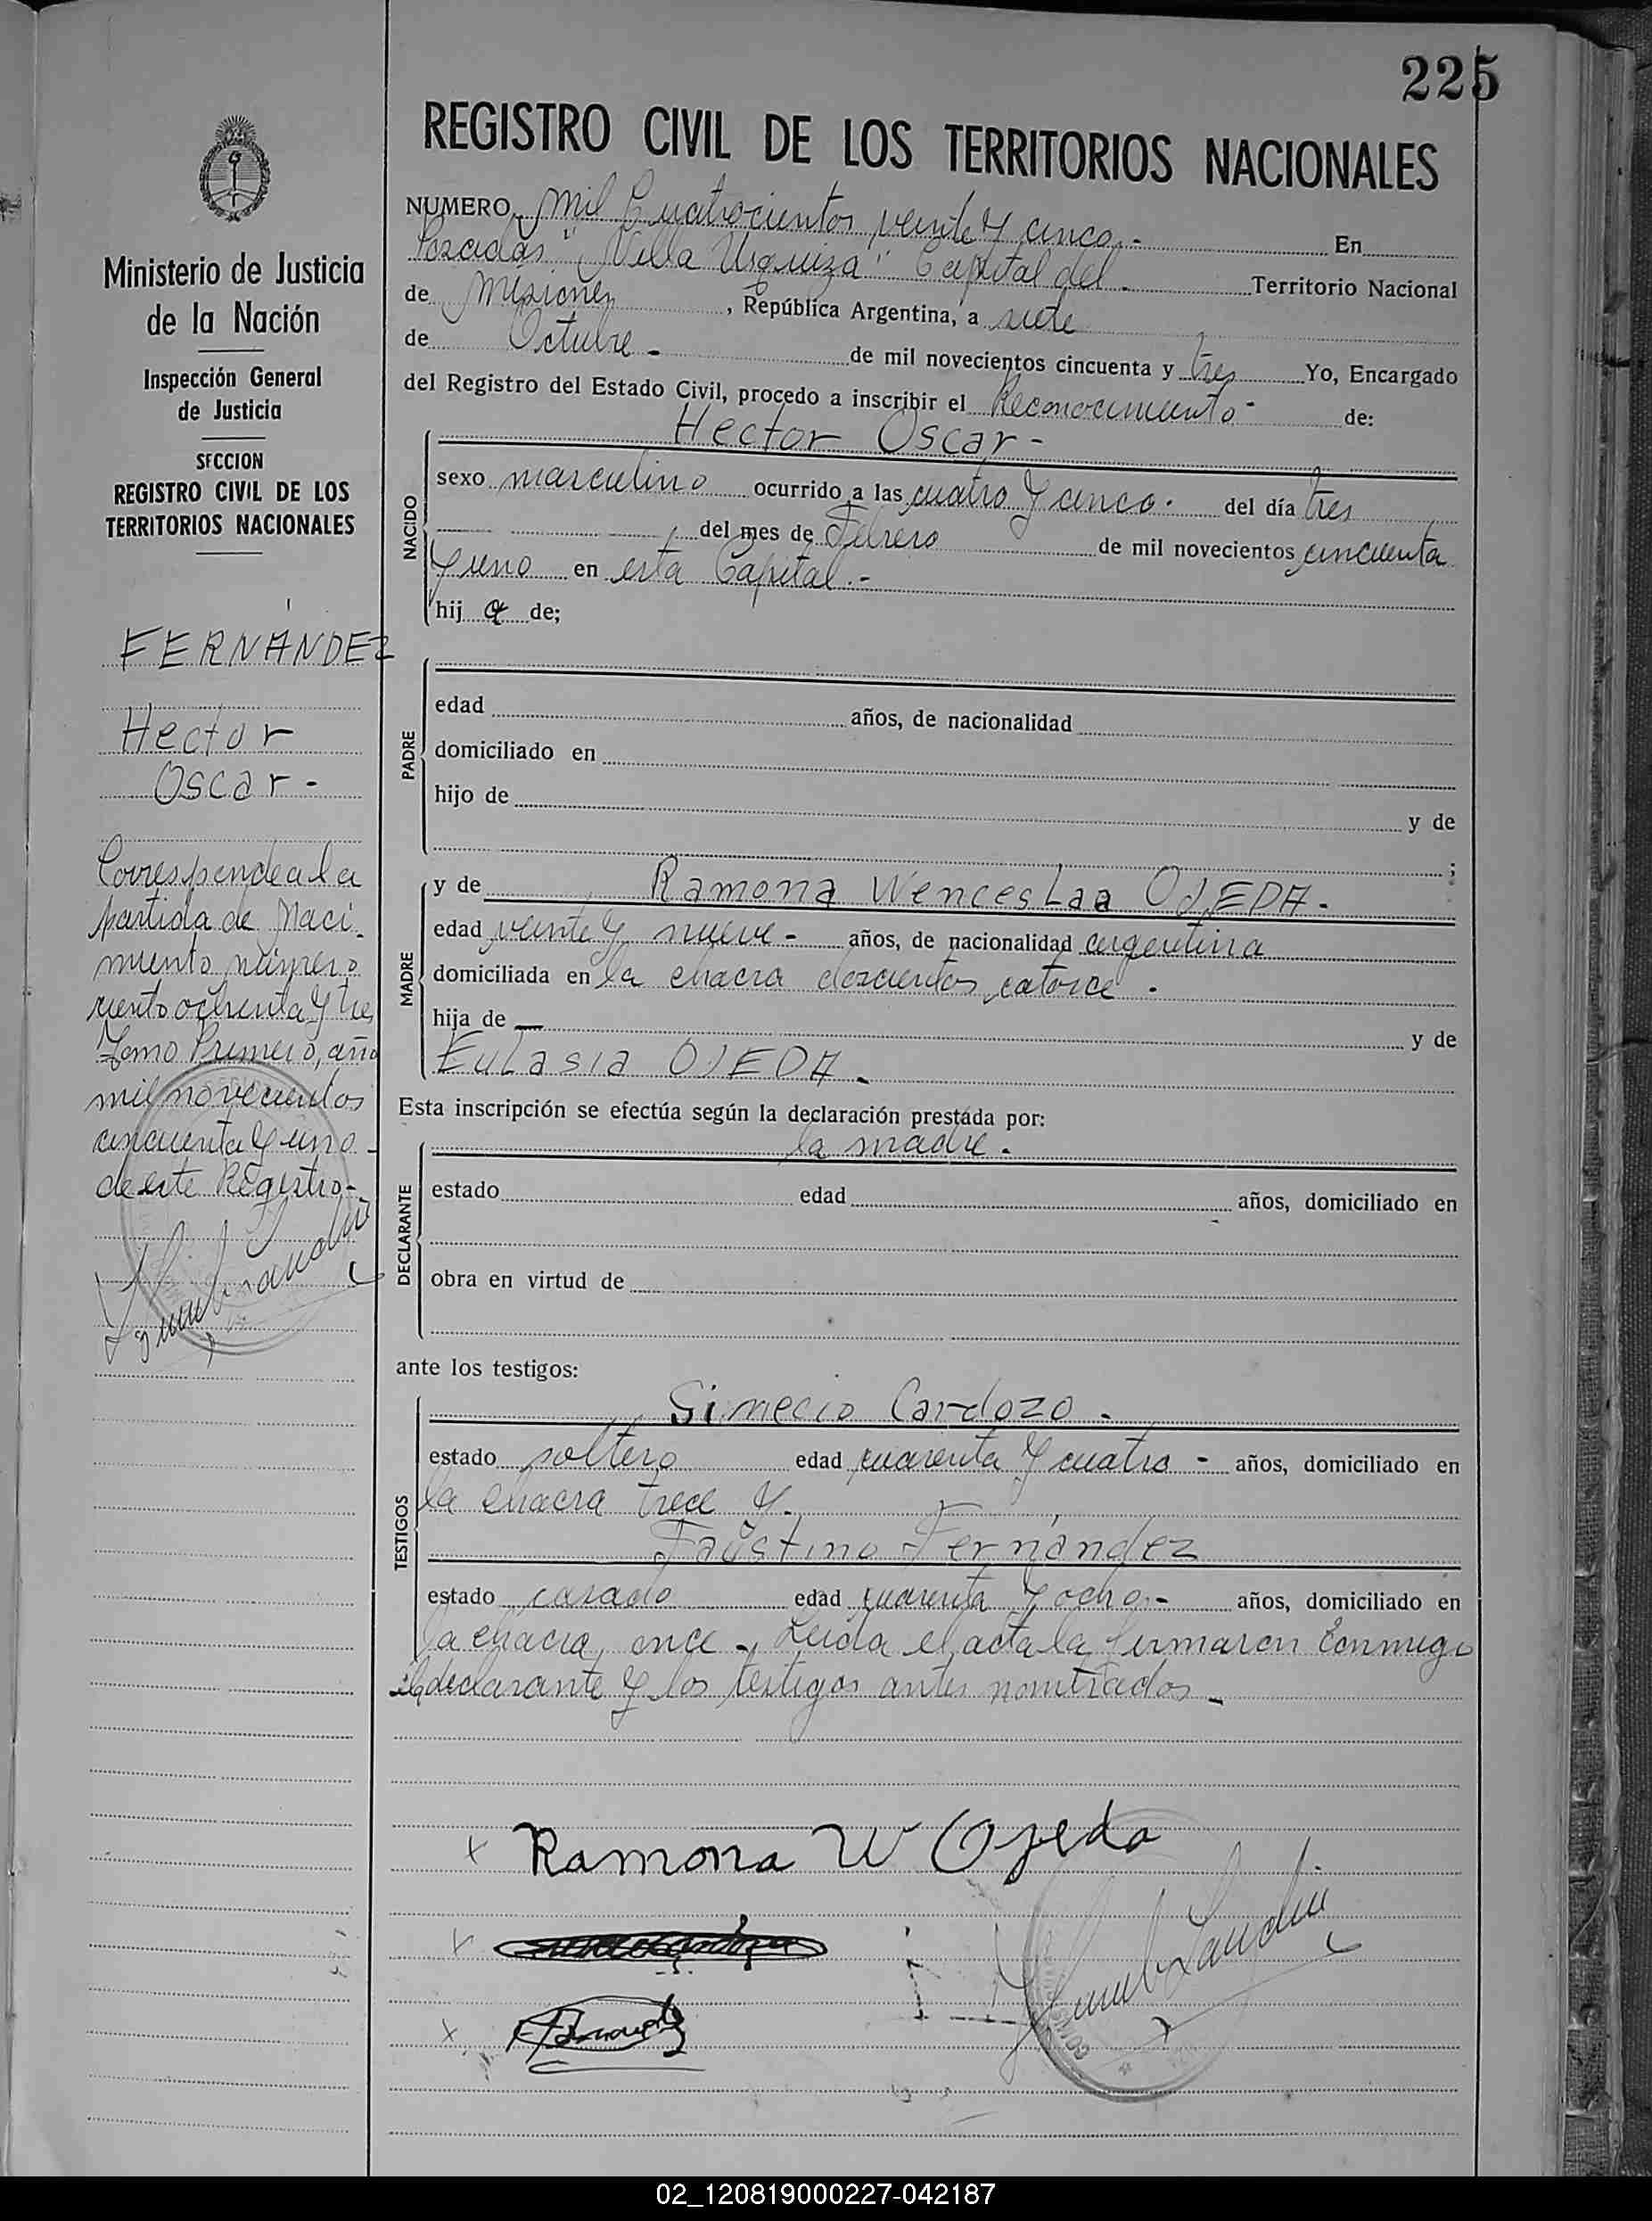 225
REGISTRO CIVIL DE LOS TERRITORIOS NACIONALES
NUMERO mil Cuatrocientos veinte y cinco.- En
Posadas "Villa Urquiza" Capital del. Territorio Nacional
de Misiones, República Argentina, a siete
de Octubre - de mil novecientos cincuenta y tres Yo, Encargado
del Registro del Estado Civil, procedo a inscribir el Reconocimiento- de:
Hector Oscar-
NACIDO
sexo masculino ocurrido a las cuatro y cinco. del día tres
del mes de Febrero de mil novecientos cincuenta
y uno en esta Capital.-
hij o de;
PADRE
edad años, de nacionalidad
domiciliado en
hijo de y de
;
MADRE
y de Ramona Wenceslaa OJEDA.
edad veinte y nueve - años, de nacionalidad argentina
domiciliada en la chacra doscientos catorce.
hija de — y de
Eulasia OJEDA.
Esta inscripción se efectúa según la declaración prestada por:
la madre.
DECLARANTE
estado edad años, domiciliado en
obra en virtud de
ante los testigos:
Simecio Cardozo.
TESTIGOS
estado soltero edad cuarenta y cuatro - años, domiciliado en
la chacra trece y.
Faustino Fernández
estado casado edad cuarenta y ocho.- años, domiciliado en
la chacra once -, Leida el acta la firmaron conmigo
el declarante y los testigos antes nombrados -
x Ramona W Ojeda
x
x
Ministerio de Justicia
de la Nación
Inspección General
de Justicia
SECCION
REGISTRO CIVIL DE LOS
TERRITORIOS NACIONALES
FERNÁNDEZ
Hector
Oscar-
Corresponde a la
partida de Naci-
miento número
ciento ochenta y tres
Tomo Primero, año
mil novecientos
cincuenta y uno
de este Registro-
02_120819000227-042187